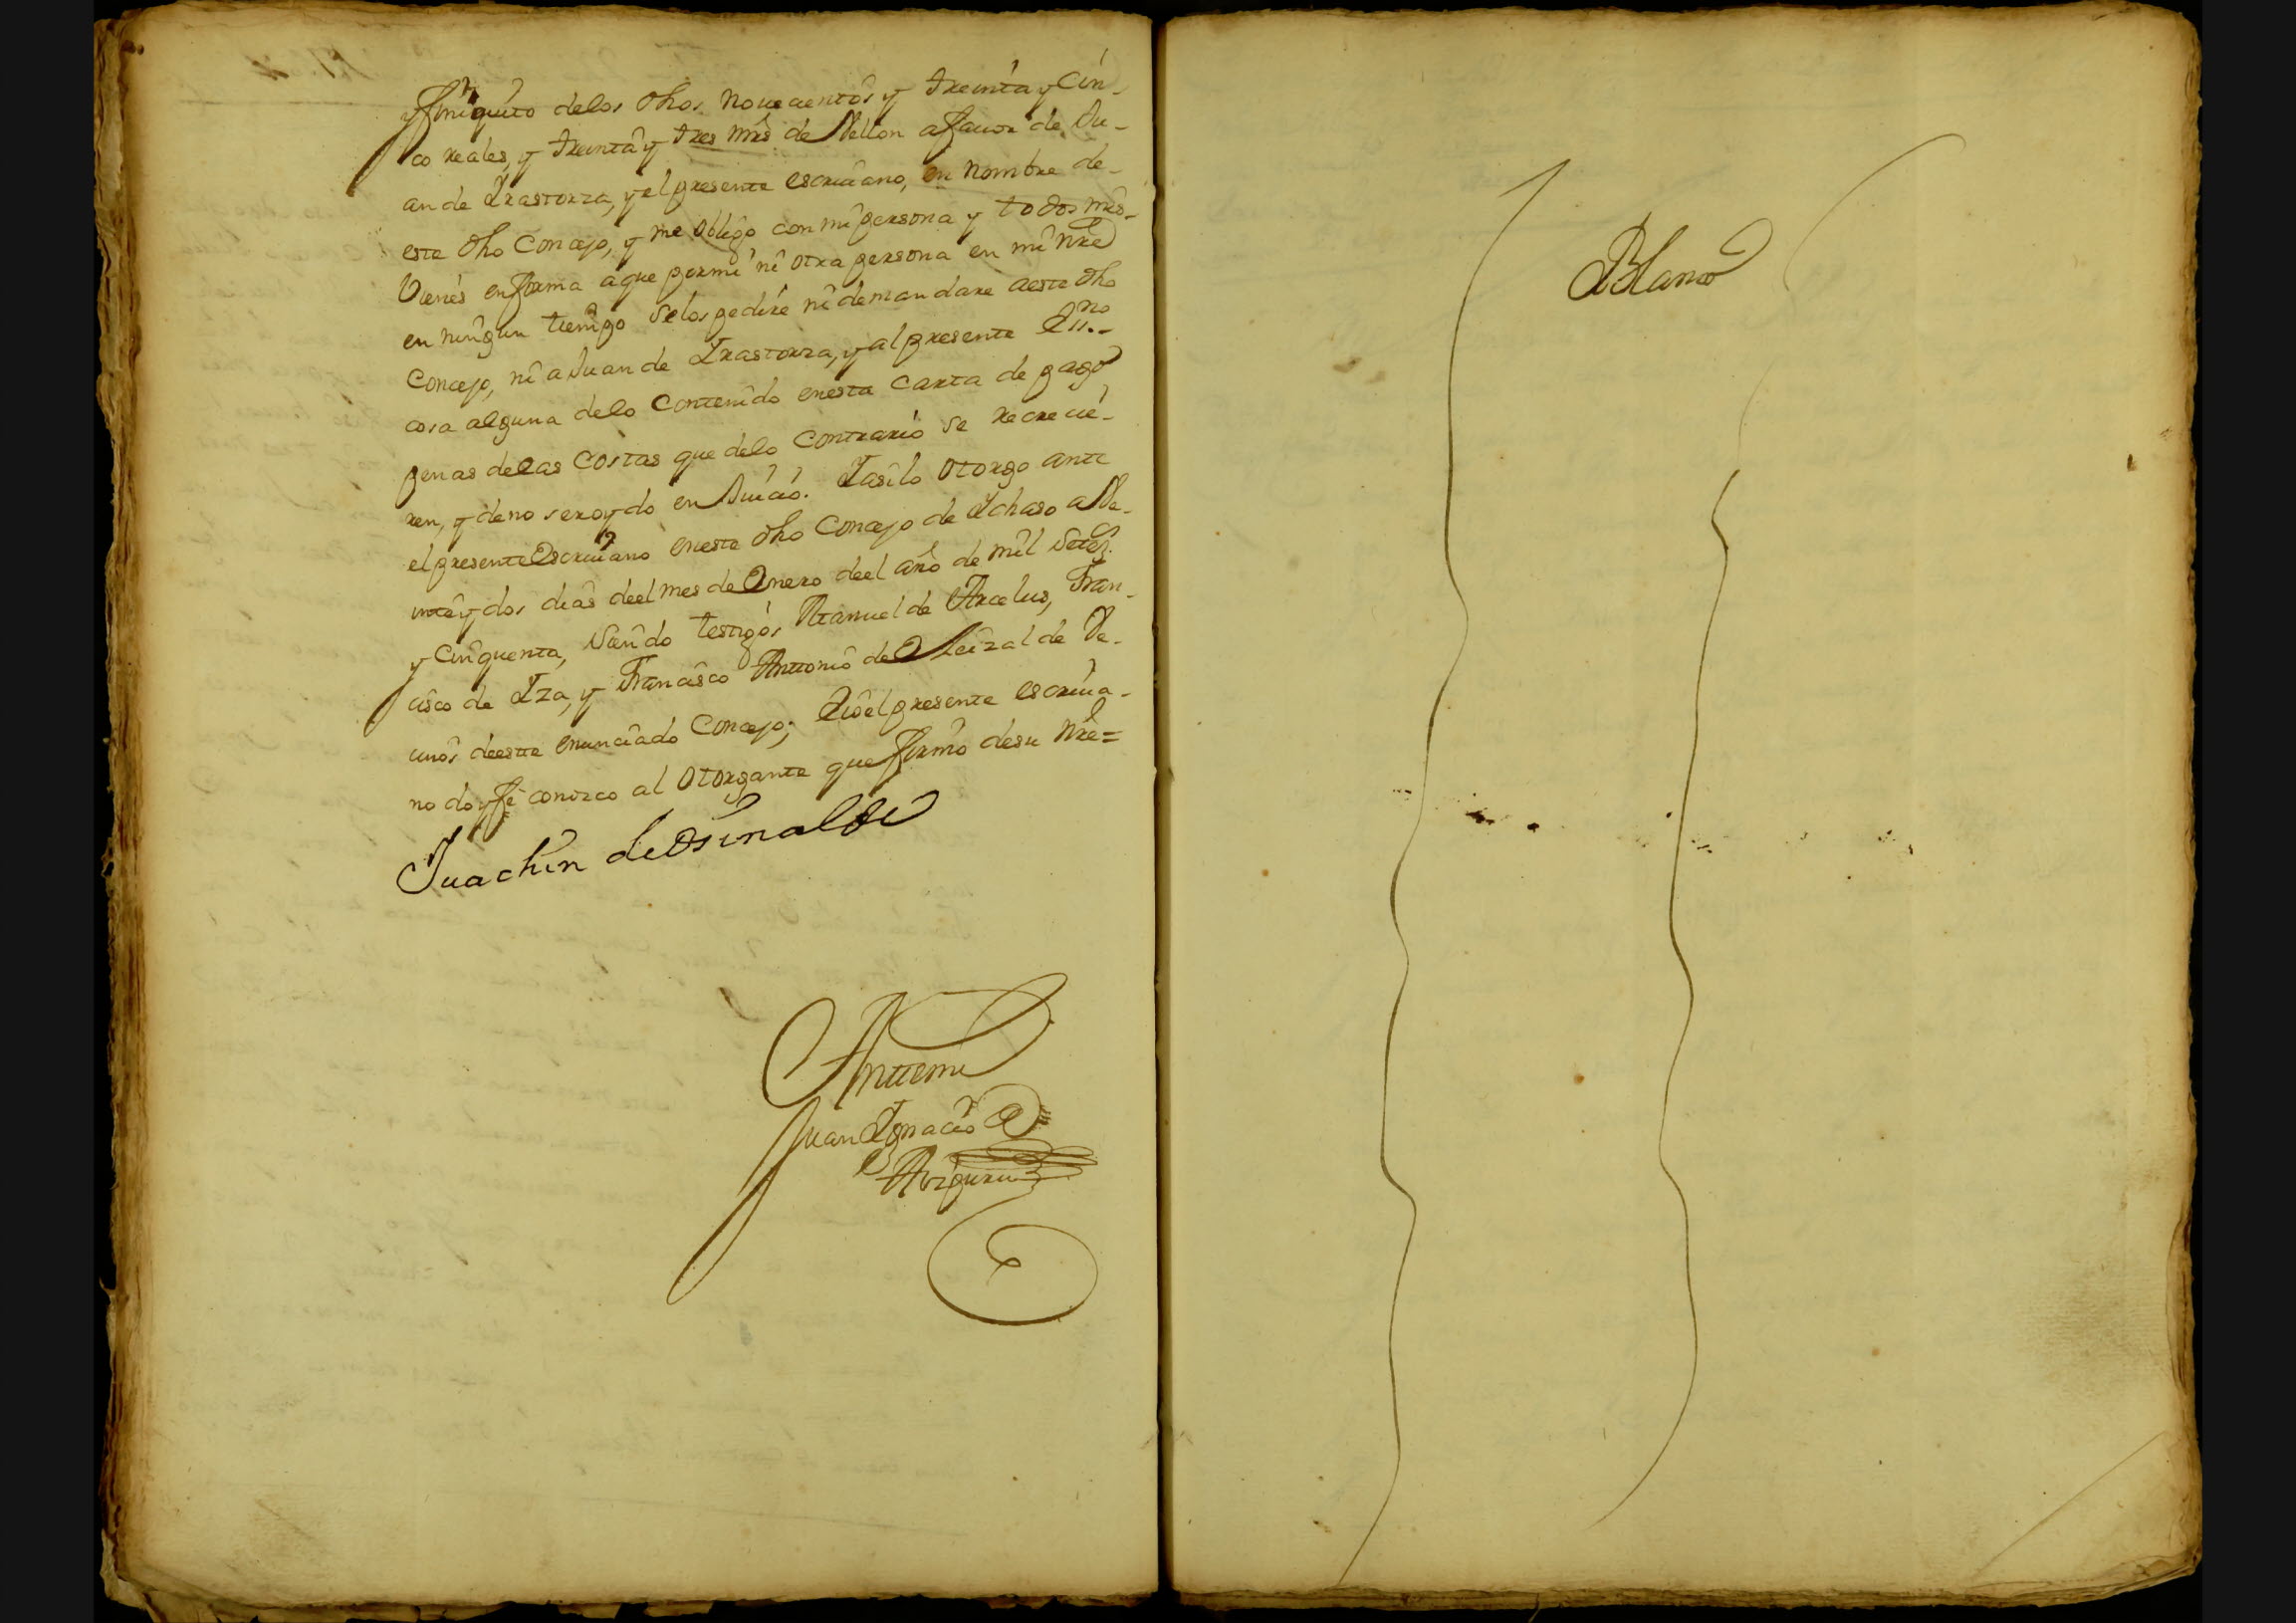 y finiquito delos dhos novecientos y treinta y Cin-
co reales, y treinta y tres mrs de Vellon afavor de Ju-
an de Irastorza, y el presente escrivano, en nombre de-
este dho Concejo, y me obligo con mi persona y todos mis-
Vienes en forma aque por mi ni otra persona en mi nre
en ningun tiempo selos pedire ni demandare aeste dho
Concejo, ni a Juan de Irastorza, y al presente Essno
cosa alguna delo Contenido enesta Carta de pago
penas delas Costas que delo Contrario se recrecie-
ren, y de no ser oydo en Juicio. Iasilo Otorgo ante
el presente Escrivano eneste dho Concejo de Ichaso a Ve-
inte y dos dias deel mes de Enero deel año de mil Setez.
y Cinquenta, Siendo testigos Manuel de Arcelus, Fran-
cisco de Iza, y Francisco Anttonio de Oleizalde Ve-
cinos deestte enunciado Concejo; E io el presente escriva-
no doy fe conozco al Otorgante que firmo desu nre=
Juachin de Osinalde
Anttemi
Juan Ignacio de
Aizpuru
Blanco